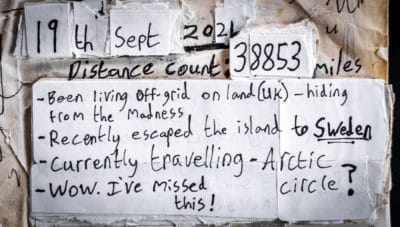 19th Sept 2021
Distance count: 38853 miles
- Been living off-grid on land (UK) - hiding
from the Madness
- Recently escaped the island to Sweden
- Currently travelling - Arctic
circle?
- Wow. I've missed
this!